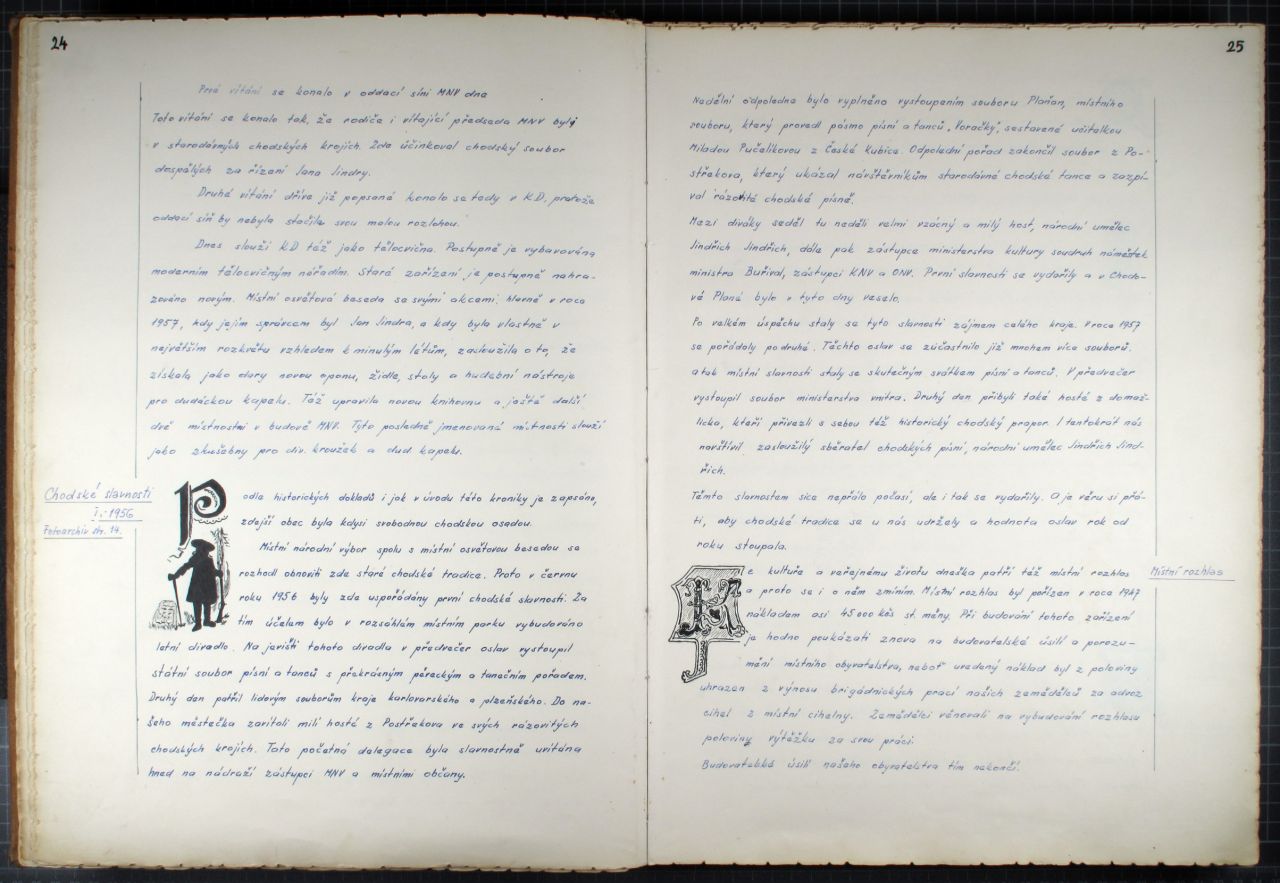 24
Prvé vítání se konalo v oddací síni MNV dne
Toto vítání se konalo tak, že rodiče i vítající předseda MNV byli
v starodávných chodských krojích. Zde účinkoval chodský soubor
dospělých za řízení Jana Jindry.
Druhé vítání dříve již popsané konalo se tedy v K.D, protože
oddací síň by nebyla stačila svou malou rozlohou.
Dnes slouží KD též jako tělocvična. Postupně je vybavována
moderním tělocvičným nářadím. Staré zařízení je postupně nahra-
zováno novým. Místní osvětová beseda se svými akcemi, hlavně v roce
1957, kdy jejím správcem byl Jan Jindra, a kdy byla vlastně v
největším rozkvětu vzhledem k minulým létům, zasloužila o to, že
získala jako dary novou oponu, židle, stoly a hudební nástroje
pro dudáckou kapelu. Též upravila novou knihovnu a ještě další
dvě místnosti v budově MNV. Tyto posledně jmenované místnosti slouží
jako zkušebny pro div. kroužek a dud. kapelu.
Chodské slavnosti
I. - 1956
Fotoarchiv str. 14.
Podle historických dokladů i jak v úvodu této kroniky je zapsáno,
zdejší obec byla kdysi svobodnou chodskou osadou.
Místní národní výbor spolu s místní osvětovou besedou se
rozhodl obnoviti zde staré chodské tradice. Proto v červnu
roku 1956 byly zde uspořádány první chodské slavnosti. Za
tím účelem bylo v rozsáhlém místním parku vybudováno
letní divadlo. Na jevišti tohoto divadla v předvečer oslav vystoupil
státní soubor písní a tanců s překrásným pěveckým a tanečním pořadem.
Druhý den patřil lidovým souborům kraje karlovarského a plzeňského. Do na-
šeho městečka zavítali milí hosté z Postřekova ve svých rázovitých
chodských krojích. Tato početná delegace byla slavnostně uvítána
hned na nádraží zástupci MNV a místními občany.
25
Nedělní odpoledne bylo vyplněno vystoupením souboru Plaňan, místního
souboru, který provedl pásmo písní a tanců „Voračky", sestavené učitelkou
Miladou Pučelíkovou z České Kubice. Odpolední pořad zakončil soubor z Po-
střekova, který ukázal návštěvníkům starodávné chodské tance a zazpí-
val rázovité chodské písně.
Mezi diváky seděl tu neděli velmi vzácný a milý host, národní umělec
Jindřich Jindřich, dále pak zástupce ministerstva kultury soudruh náměstek
ministra Buřival, zástupci KNV a ONV. První slavnosti se vydařily a v Chodo-
vé Plané bylo v tyto dny veselo.
Po velkém úspěchu staly se tyto slavnosti zájmem celého kraje. V roce 1957
se pořádaly po druhé. Těchto oslav se zúčastnilo již mnohem více souborů.
a tak místní slavnosti staly se skutečným svátkem písní a tanců. V předvečer
vystoupil soubor ministerstva vnitra. Druhý den přibyli také hosté z domaž-
licka, kteří přivezli s sebou též historický chodský prapor. I tentokrát nás
navštívil zasloužilý sběratel chodských písní, národní umělec Jindřich Jind-
řich.
Těmto slavnostem sice nepřálo počasí, ale i tak se vydařily. A je věru si přá-
ti, aby chodské tradice se u nás udržely a hodnota oslav rok od
roku stoupala.
Místní rozhlas
Ke kultuře a veřejnému životu dneška patří též místní rozhlas
a proto se i o něm zmíním. Místní rozhlas byl pořízen v roce 1947
nákladem asi 45 000 kčs st. měny. Při budování tohoto zařízení
je hodno poukázati znova na budovatelské úsilí a porozu-
mění místního obyvatelstva, neboť uvedený náklad byl z poloviny
uhrazen z výnosu brigádnických prací našich zemědělců za odvoz
cihel z místní cihelny. Zemědělci věnovali na vybudování rozhlasu
polovinu výtěžku za svou práci.
Budovatelské úsilí našeho obyvatelstva tím nekončí.